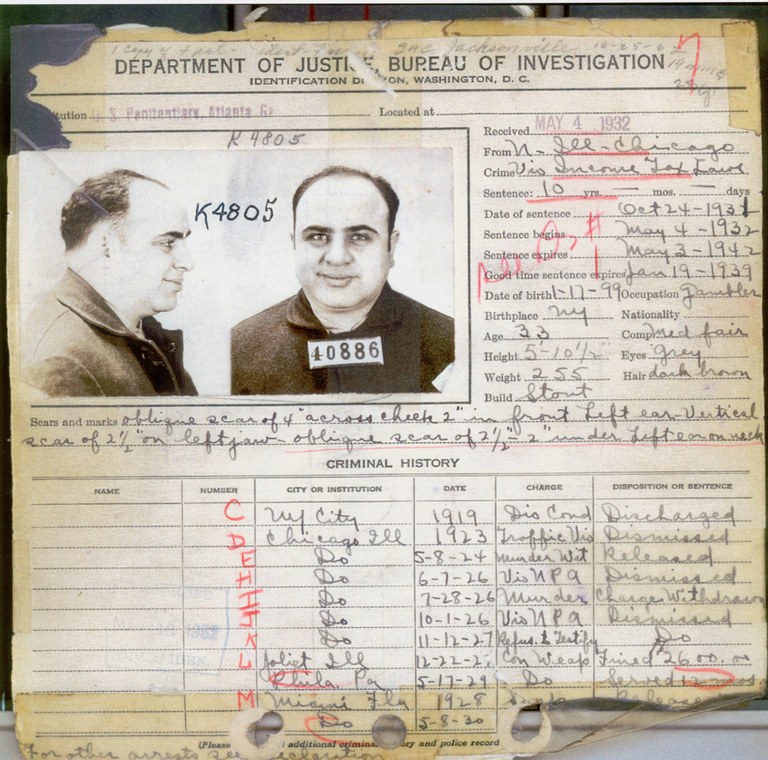 1 copy of Jacksonville 10-25-
DEPARTMENT OF JUSTICE, BUREAU OF INVESTIGATION
IDENTIFICATION DI ON, WASHINGTON, D. C.
tution U S Penitentiary, Atlanta Ga Located at
K 4805
Received MAY 4 1932
From N- Ill-Chicago
Crime Vio Income Tax Laws
Sentence: 10 yrs. — mos. — days
Date of sentence Oct 24-1931
Sentence begins May 4-1932
Sentence expires May 3-1942
Good time sentence expires Jan 19-1939
Date of birth 1-17-99 Occupation Gambler
Birthplace NY Nationality
Age 33 Comp med fair
Height 5'-10½" Eyes grey
Weight 255 Hair dark brown
Build Stout
K4805
40886
Scars and marks oblique scar of 4" across cheek 2" in front left ear-Vertical
scar of 2½" on left jaw- oblique scar of 2½"- 2" under left ear on neck
CRIMINAL HISTORY
NAME NUMBER CITY OR INSTITUTION DATE CHARGE DISPOSITION OR SENTENCE
C NY City 1919 Dis Cond Discharged
D Chicago Ill 1923 Traffic Vio Dismissed
E Do 5-8-24 Murder Wit Released
Do 6-7-26 Vio NPA Dismissed
Do 7-28-26 Murder Charge Withdrawn
Do 10-1-26 Vio NPA Dismissed
K Do 11-12-27 Refus. to Testify Do
L Joliet Ill 12-22-2 Con Weap Fined 2600.
Phila, Pa 5-17-29 Do Served 12 mos
M Miami Fla 1928 Released
Do 5-8-30
(Please additional criminal ory and police record
For other arrests see